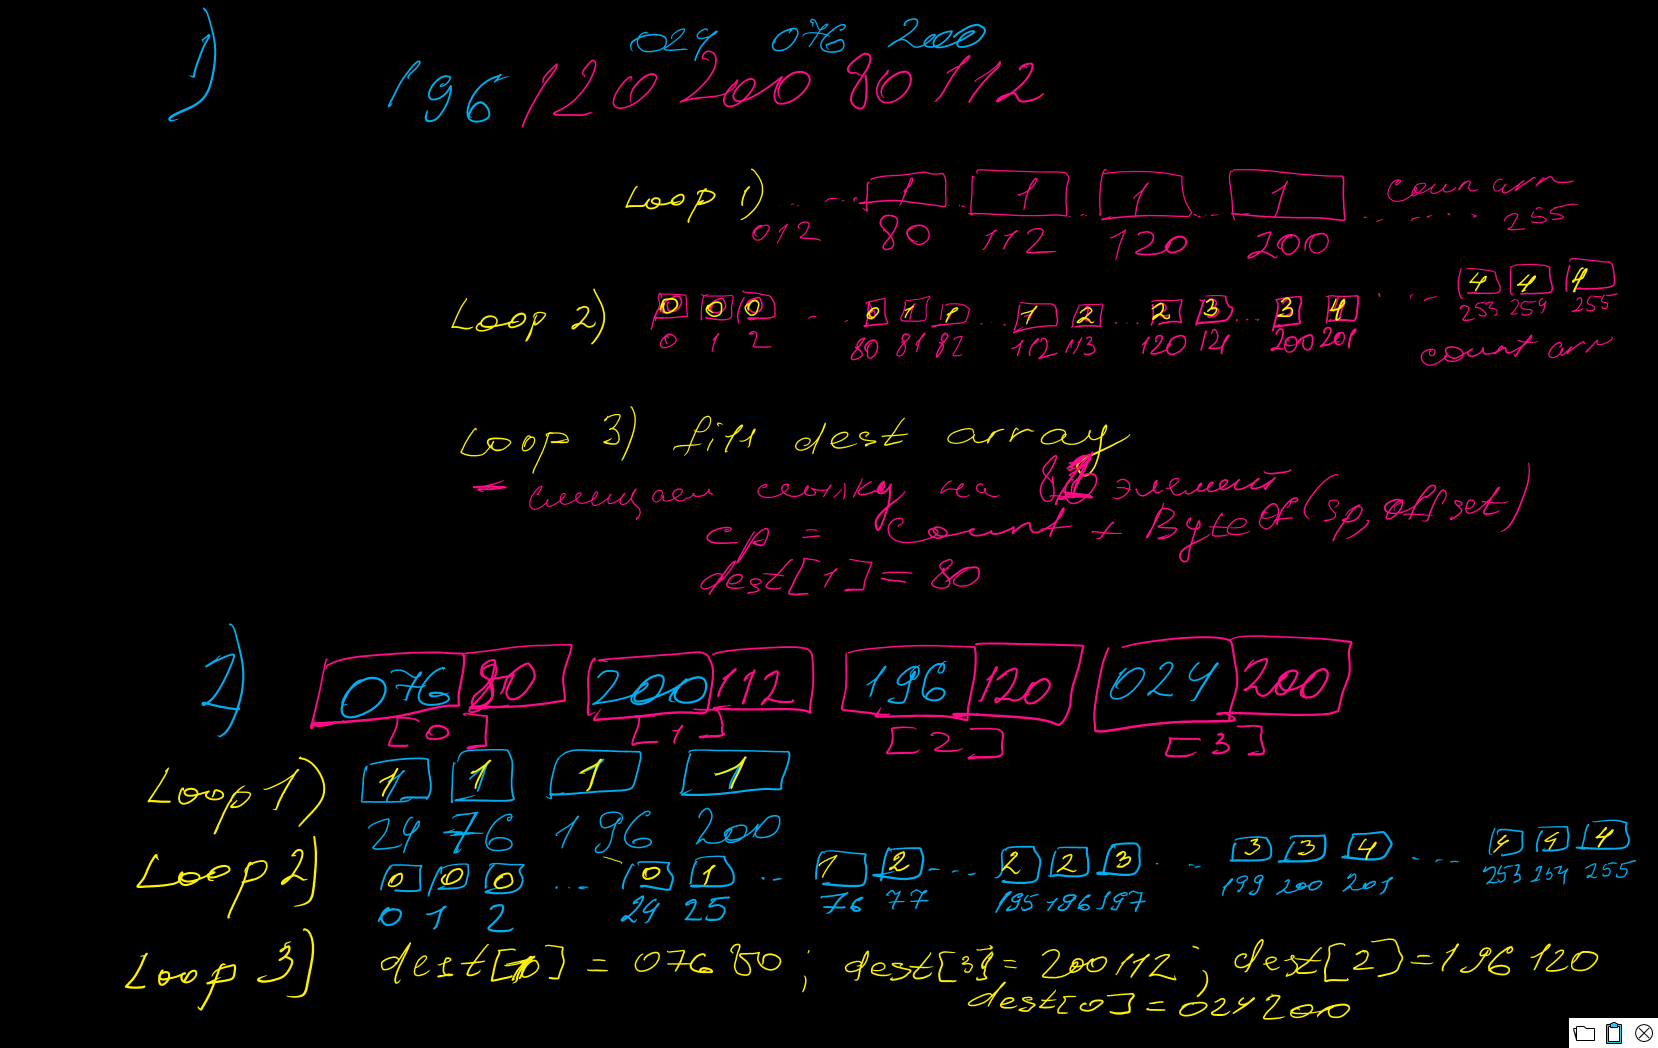 1)
024 076 200
196 120 200 80 112
Loop 1) ... ... 1 ... 1 ... 1 ... 1 coun arr
0 1 2 80 112 120 200 ... ... 255
Loop 2) 0 0 0 ... 0 1 1 ... 1 2 ... 2 3 ... 3 4 ... 4 4 4
0 1 2 80 81 82 112 113 120 121 200 201 253 254 255
count arr
Loop 3) fill dest array
- смищаем ссылку на элемент
cp = count + ByteOf(sp, offset)
dest[1] = 80
2) 076 80 200 112 196 120 024 200
[0] [1] [2] [3]
Loop 1) 1 1 1 1
24 76 196 200
Loop 2) 0 0 0 ... 0 1 .. 1 2 ... 2 2 3 ... 3 3 4 ... 4 4 4
0 1 2 24 25 76 77 195 196 197 199 200 201 253 254 255
Loop 3) dest[1] = 076 80 ; dest[3] = 200112 ; dest[2] = 196 120
dest[0] = 024 200